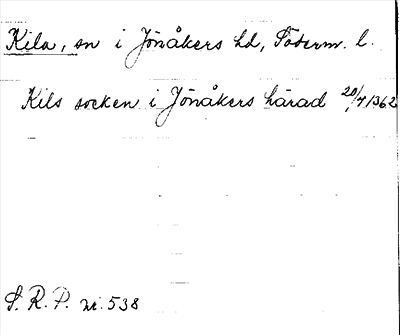 Kila, sn i Jönåkers hd, Söderm. l.
Kils socken i Jönåkers härad 20/7 1362
S. R. P. nr. 538